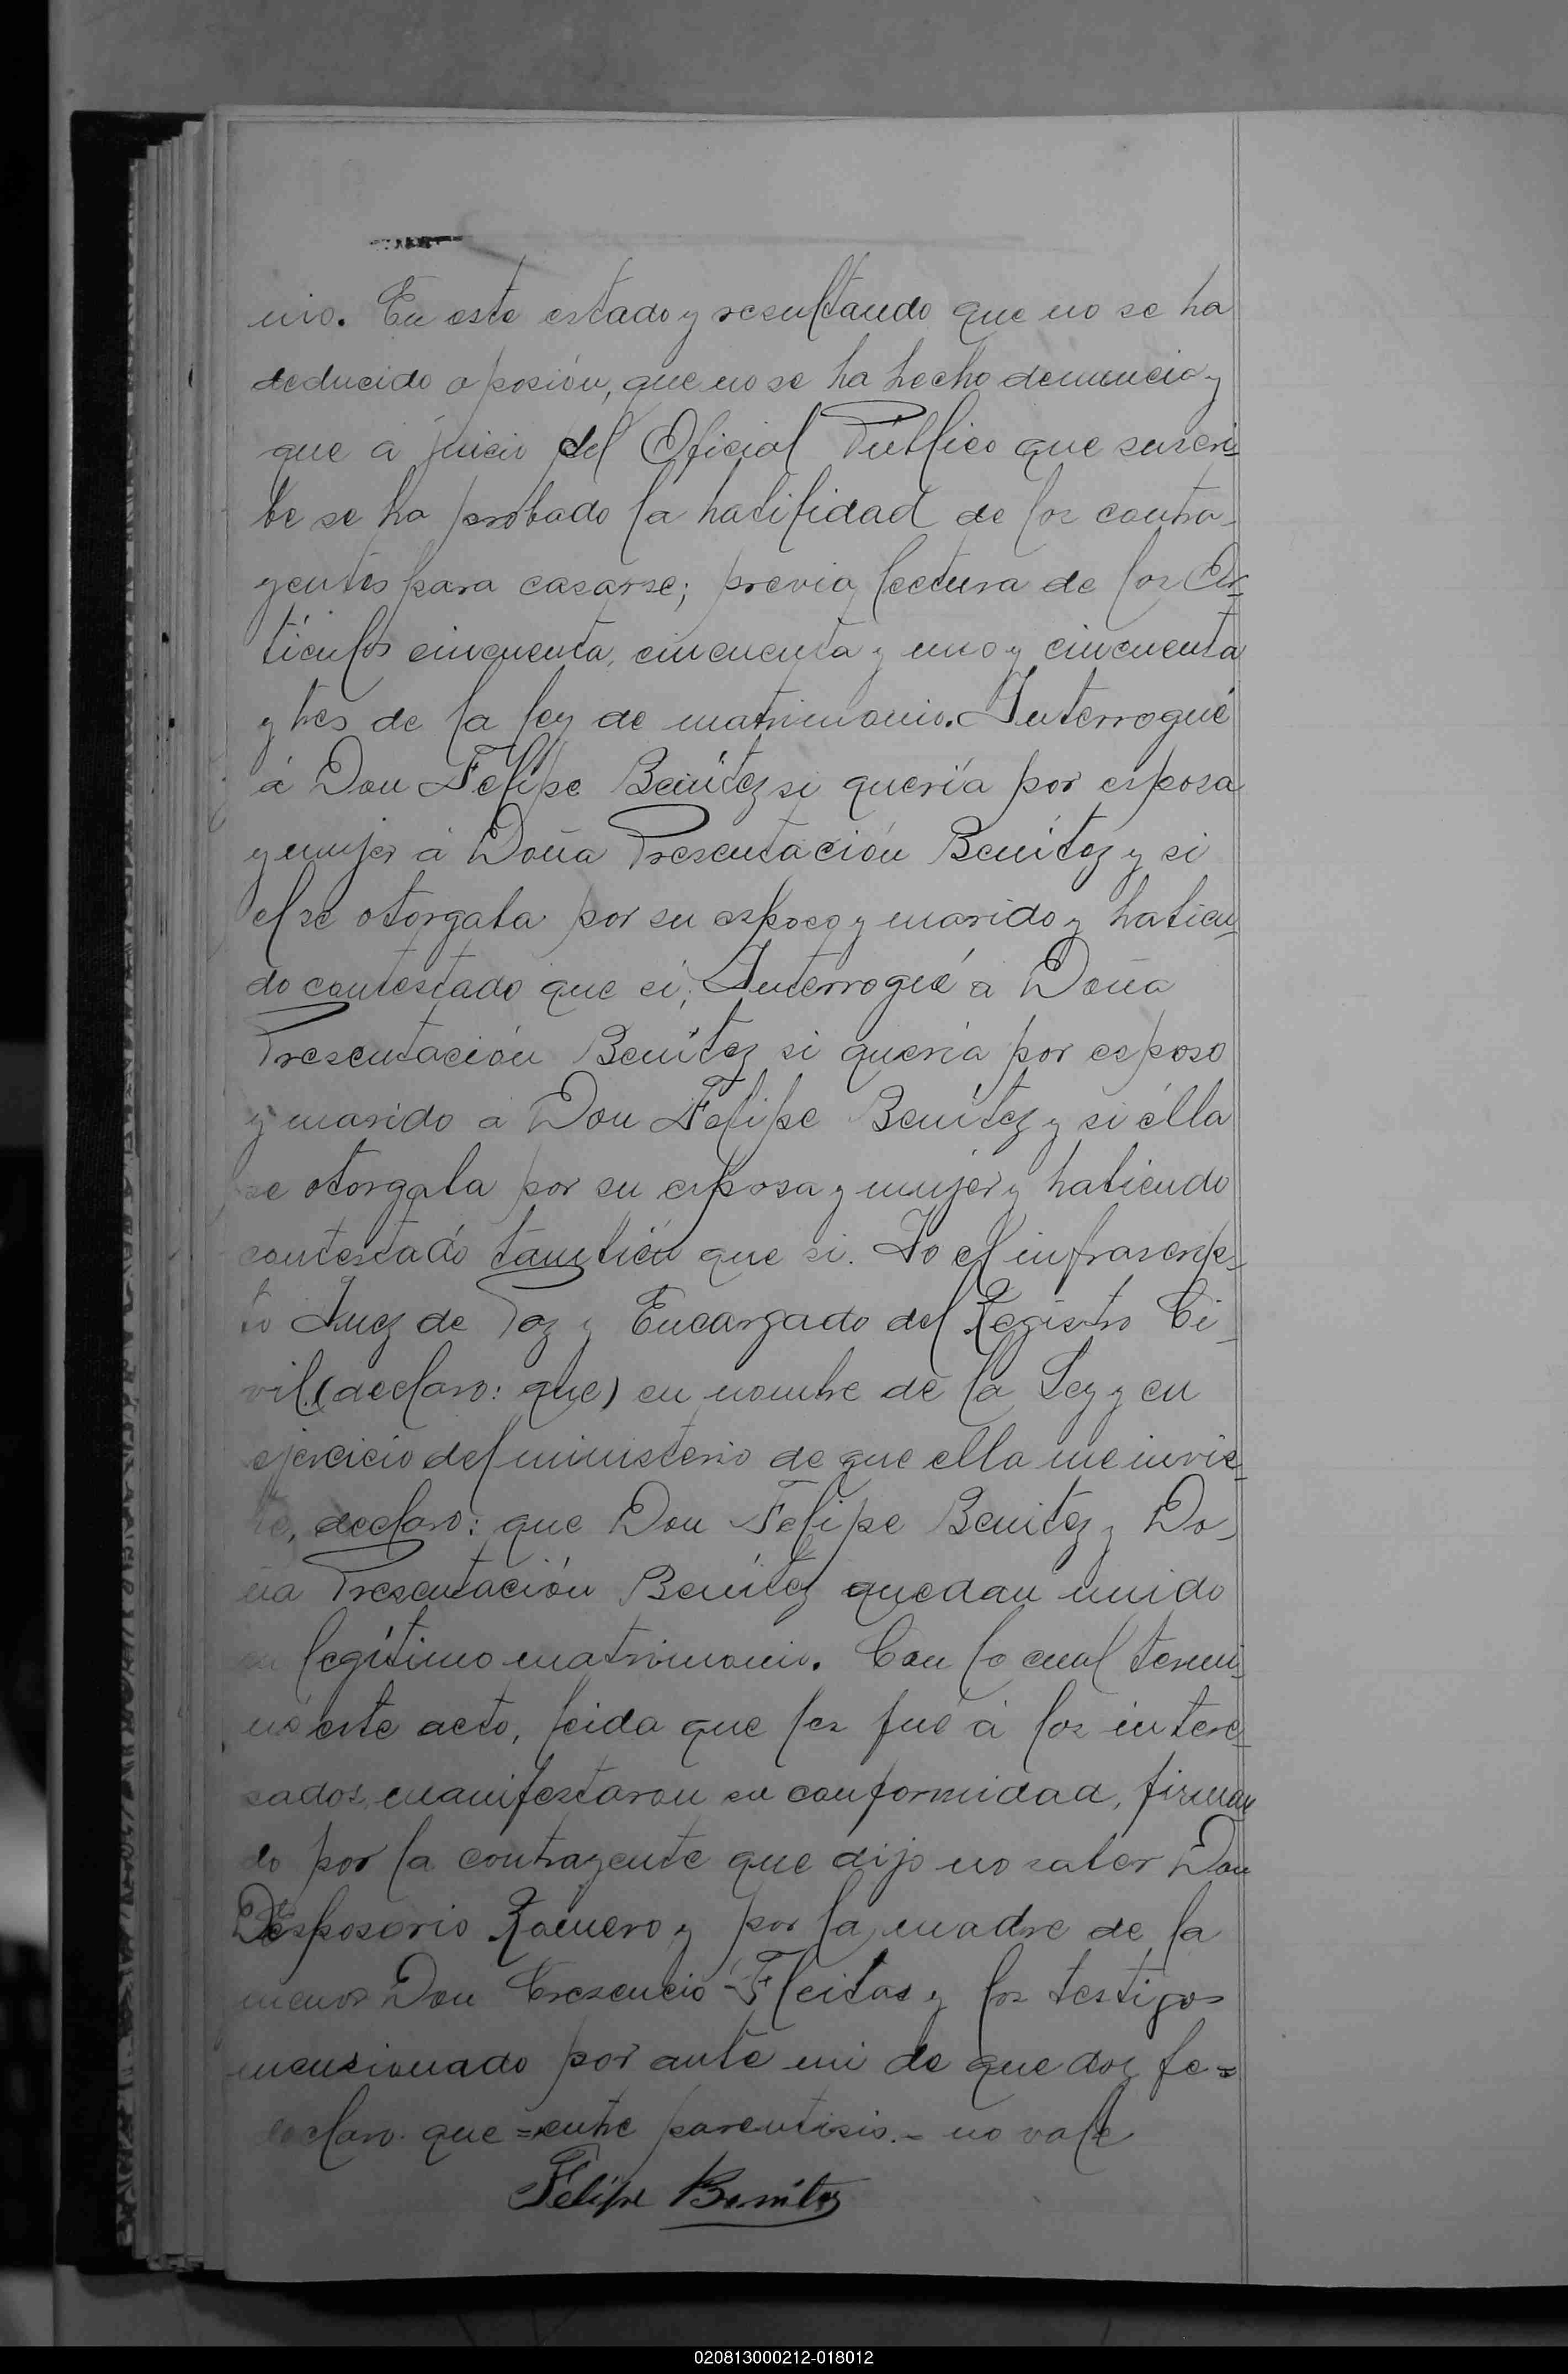 nio. En este estado y resultando que no se ha
deducido oposión, que no se ha hecho denuncia y
que á juicio del Oficial Público que suscri-
be se ha probado la habilidad de los contra-
yentes para casarse; previa lectura de los Ar-
tículos cincuenta, cincuenta y uno y cincuenta
y tres de la ley de matrimonio. Interrogué
á Don Felipe Benítez si quería por esposa
y mujer á Doña Presentación Benítez y si
el se otorgaba por su esposo y marido y habien-
do contestado que si; Interrogué á Doña
Presentación Benítez si quería por esposo
y marido á Don Felipe Benítez y si élla
se otorgaba por su esposa y mujer y habiendo
contestado también que si. Yo el infrascrip-
to Juez de Paz y Encargado del Registro Ci-
vil (declaro: que) en nombre de la Ley y en
ejercicio del ministerio de que ella me invis-
te, declaro: que Don Felipe Benítez y Do-
ña Presentación Benítez quedan unido
en legítimo matrimonio. Con lo cual termi-
nó este acto, leida que les fué á los intere-
sados, manifestaron su conformidad, firman
do por la contrayente que dijo no saber Don
Desposorio Romero y por la madre de la
menor Don Cresencio Fleitas y los testigos
mensionado por ante mi de que doy fe=
declaro que = entre parentisis.= no vale
Felipe Benítez
020813000212-018012